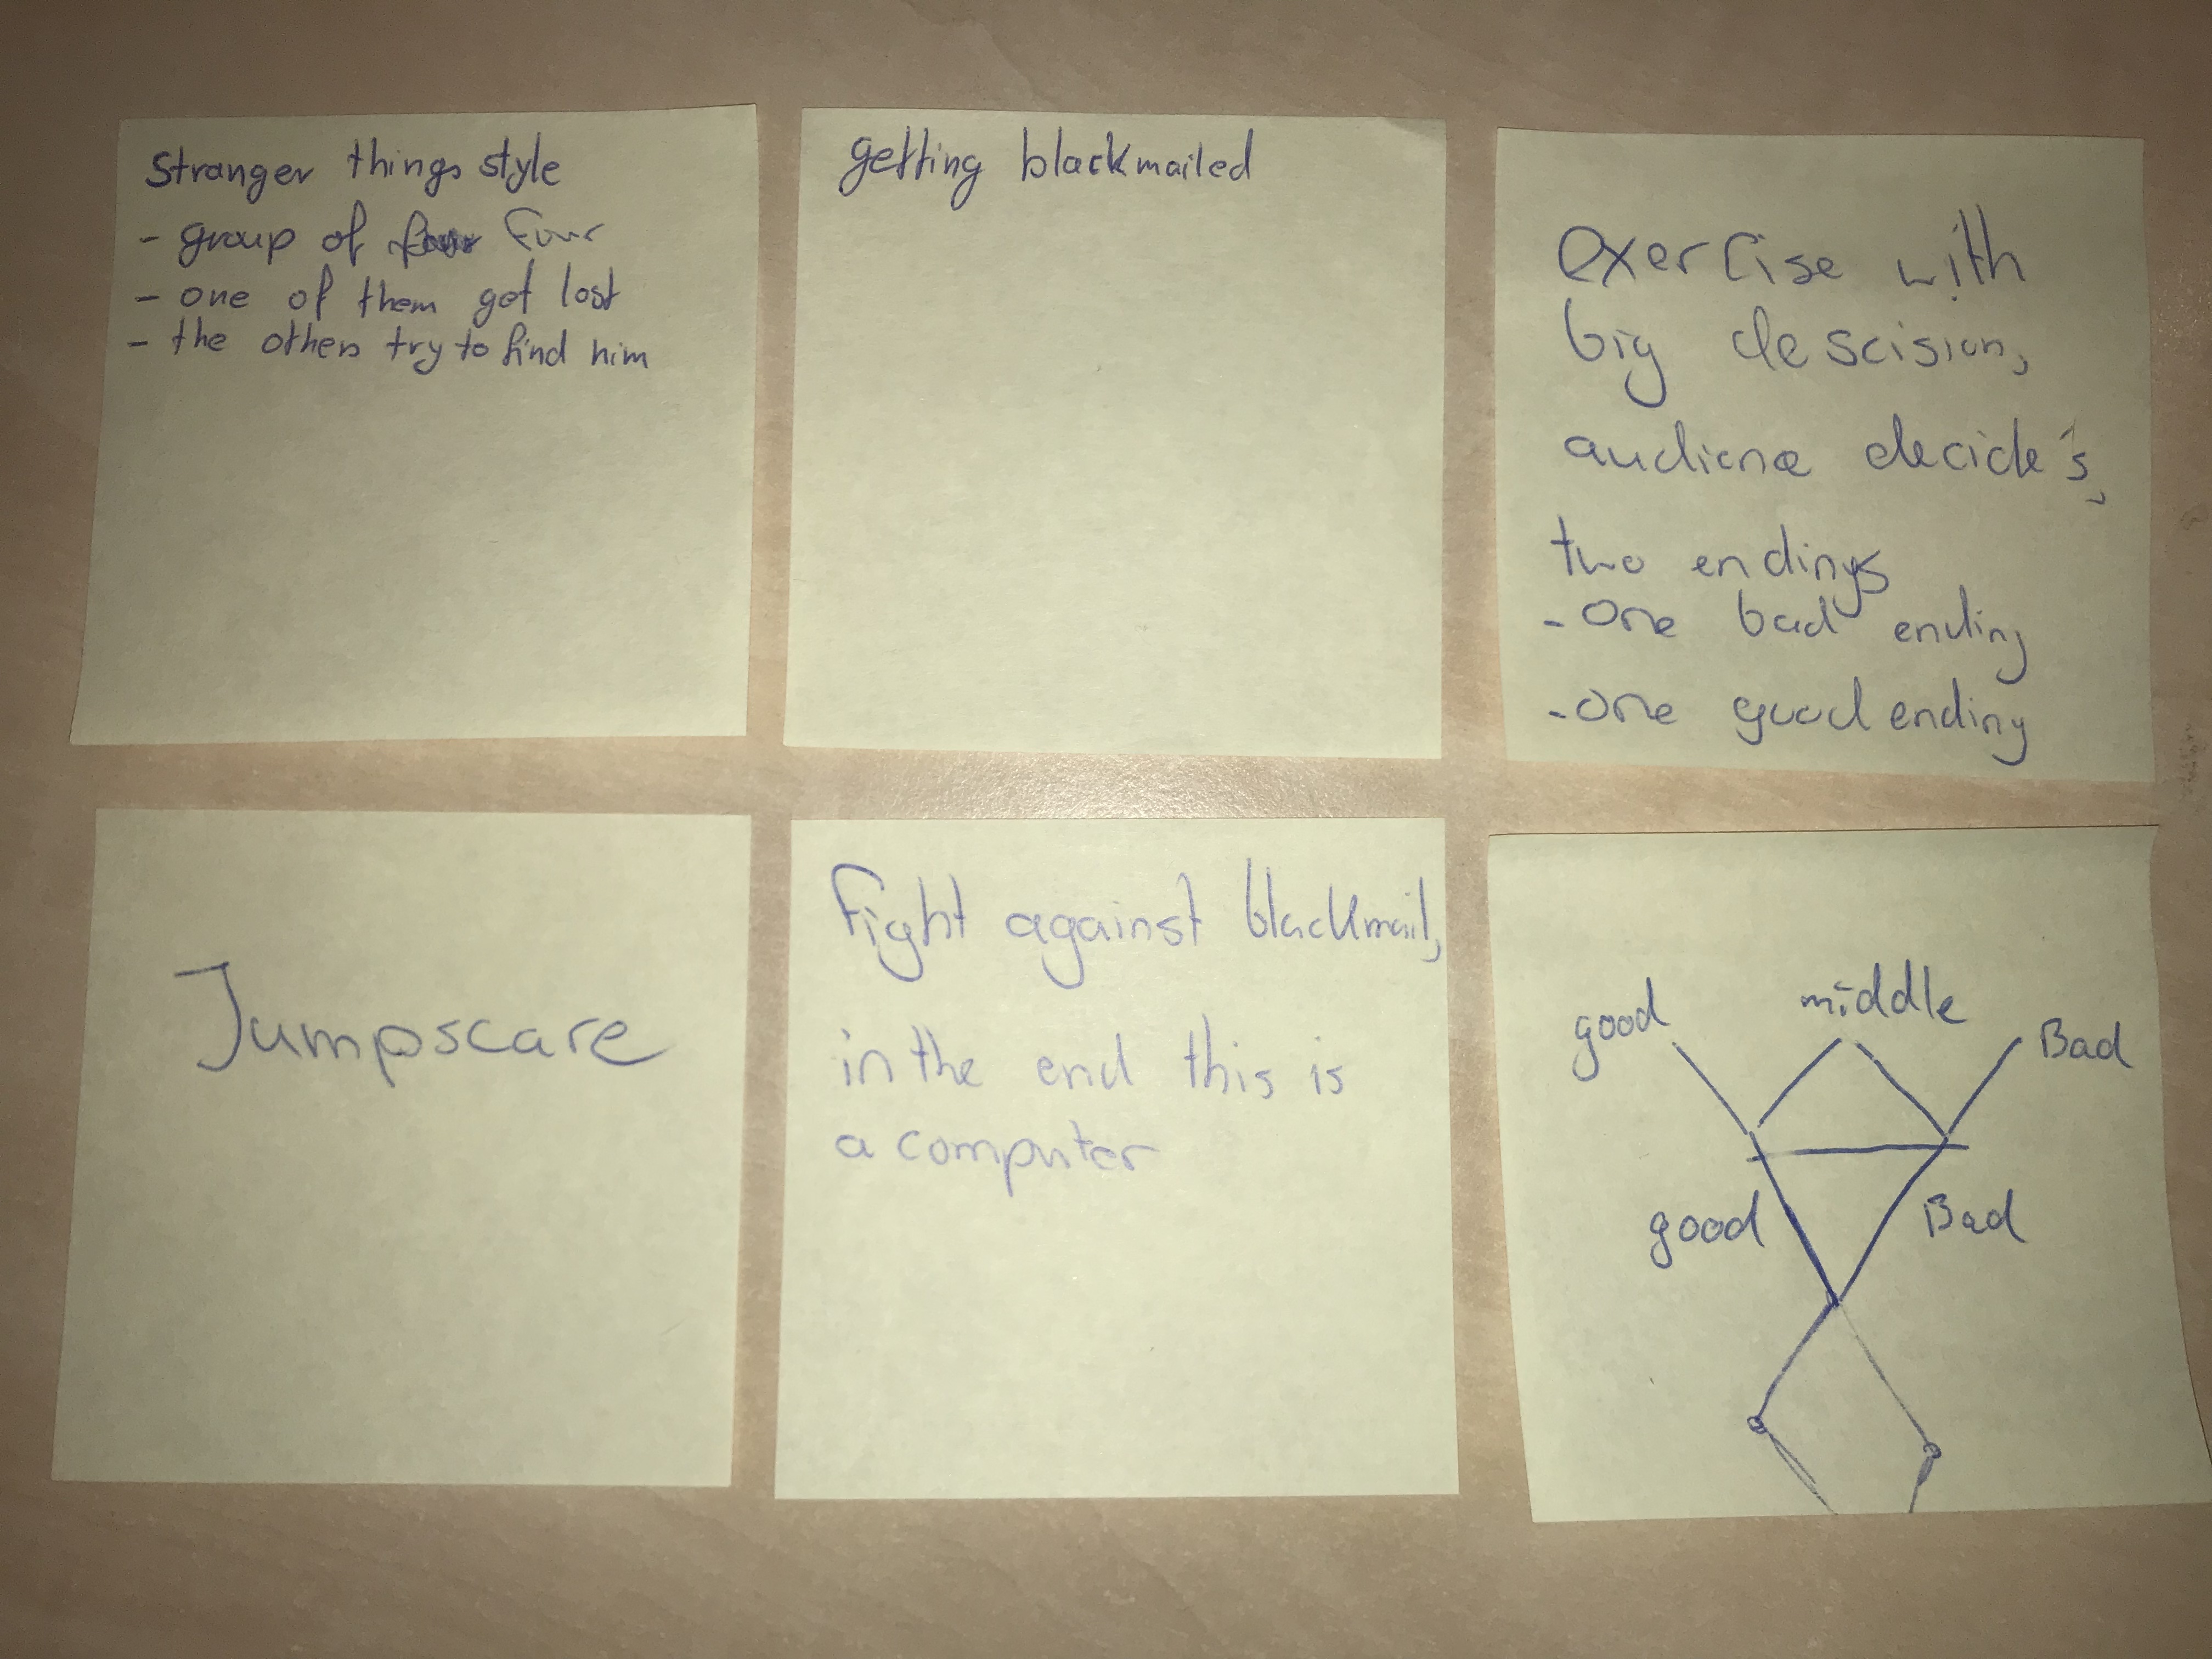 Stranger things style
- group of four Four
- one of them got lost
- the others try to find him
getting blackmailed
exercise with
big descision,
audience decide's,
two endings
- one bad ending
- one good ending
Jumpscare
Fight against blackmail,
in the end this is
a computer
good middle Bad
good Bad